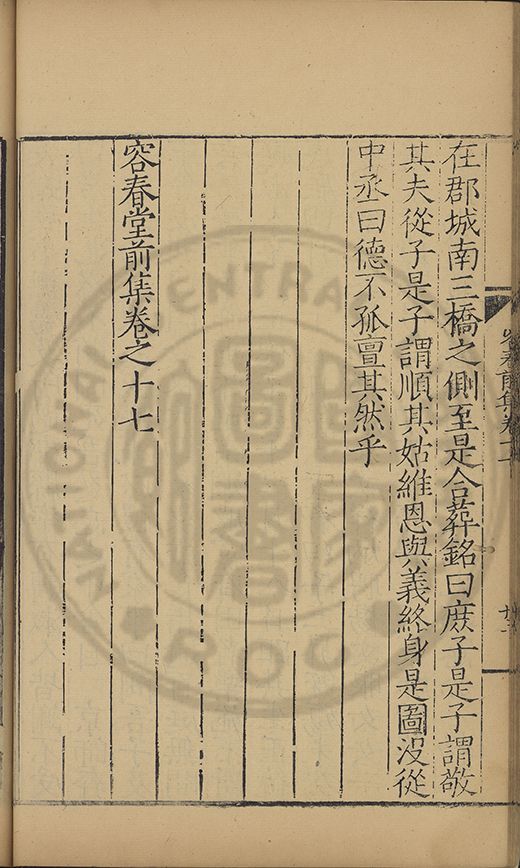 在郡城南三橋之側至是合葬銘曰庶子是子謂敬
其夫從子是子謂順其姑維恩與義終身是圖沒從
中丞曰德不孤亶其然乎
容春堂前集卷之十七